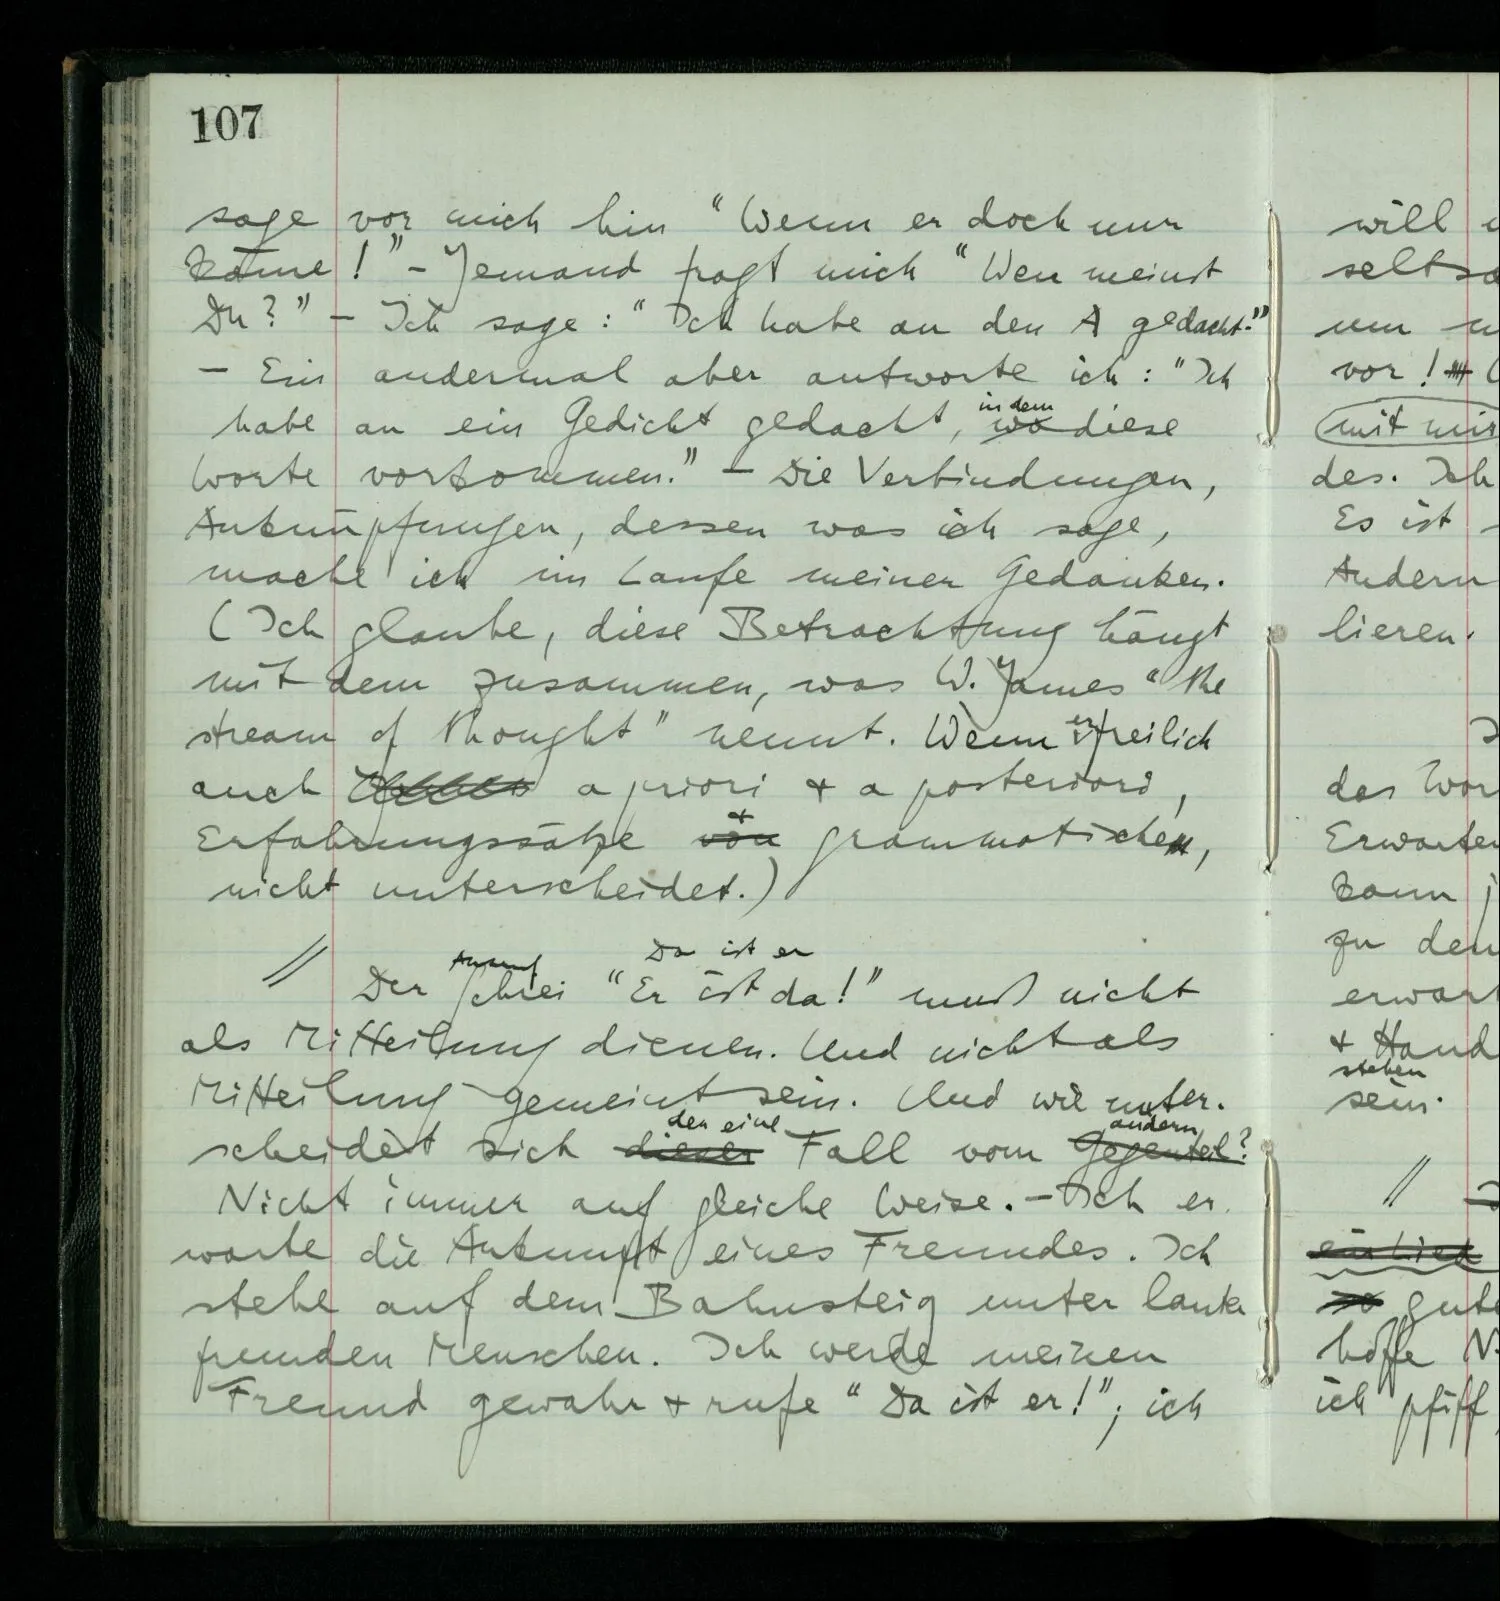 107
sage vor mich hin “Wenn er doch nur
käme!” – Jemand fragt mich “Wen meinst
Du?” – Ich sage: “Ich habe an den A gedacht.”
– Ein andermal aber antworte ich: “Ich
habe an ein Gedicht gedacht, wo in dem diese
Worte vorkommen.” – Die Verbindungen,
Anknüpfungen, dessen was ich sage,
mache ich im Laufe meiner Gedanken.
(Ich glaube, diese Betrachtung hängt
mit dem zusammen, was W. James “the
stream of thought” nennt. Wenn er freilich
auch a priori & a posteriori,
Erfahrungssätze von & grammatische,
nicht unterscheidet.)
// Ausruf Da ist er
Der Schrei “Er ist da!” muß nicht
als Mitteilung dienen. Und nicht als
Mitteilung gemeint sein. Und wie unter-
scheidet sich dieser der eine Fall vom Gegenteil andern?
Nicht immer auf gleiche Weise. – Ich er-
warte die Ankunft eines Freundes. Ich
stehe auf dem Bahnsteig unter lauter
fremden Menschen. Ich werde meinen
Freund gewahr & rufe “Da ist er!”; ich
will
vor!
mit mir
des. Ich
Es ist
Andern
lieren.
das Wor
Erwarten
kann
zu den
erwart
& Hand
stehen
sein.
//
ein Lied
so gute
hoffe
ich pfiff